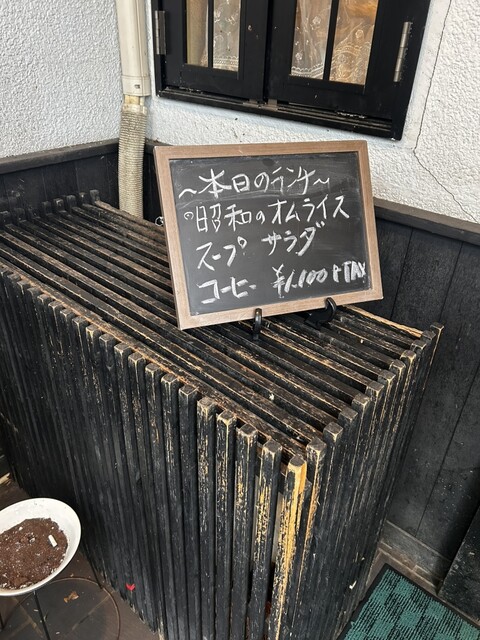 ~本日のランチ~
◎昭和のオムライス
スープ サラダ
コーヒー ¥1,100+TAX